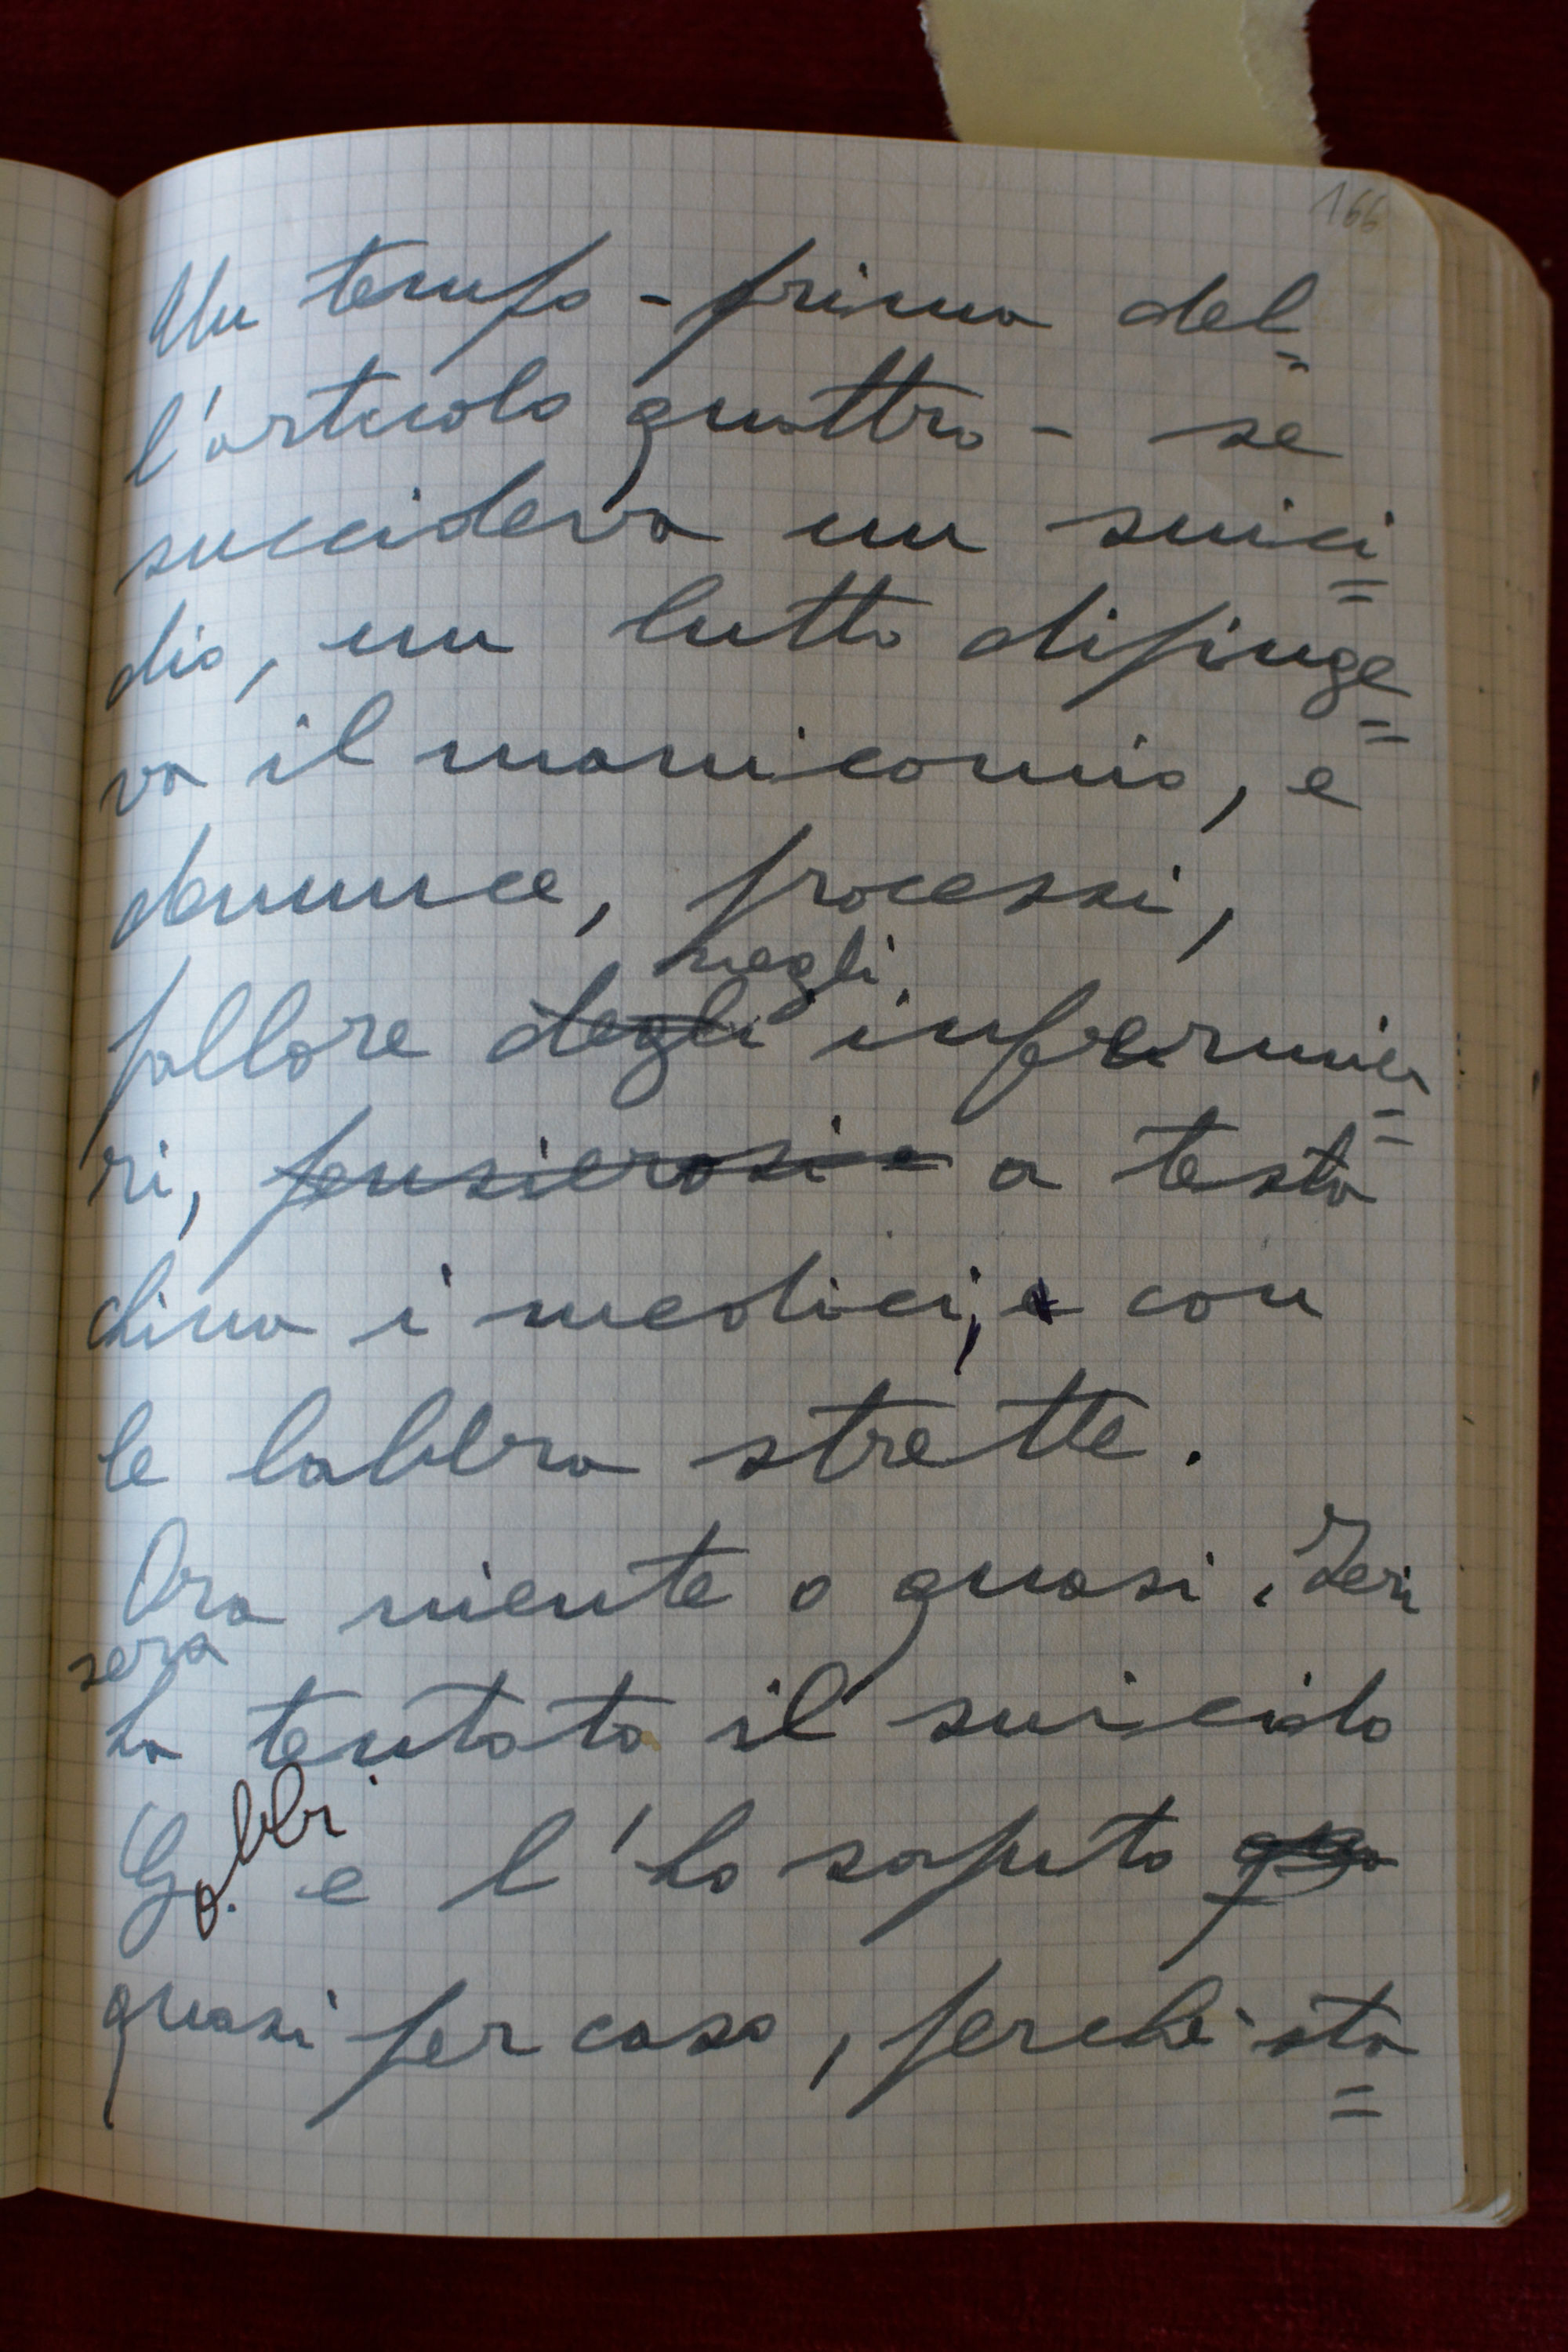 166
Un tempo - prima del=
l'articolo quattro - se
succideva un suici=
dio, un lutto dipinge=
va il manicomio, e
denunce, processi,
negli
pallore degli infermie=
ri, pensierosi e a testa
china i medici, e con
le labbra strette.
Ora niente o quasi. Ieri
sera
ha tentato il suicidio
Gabbi e l'ho saputo
quasi per caso, perché sta=